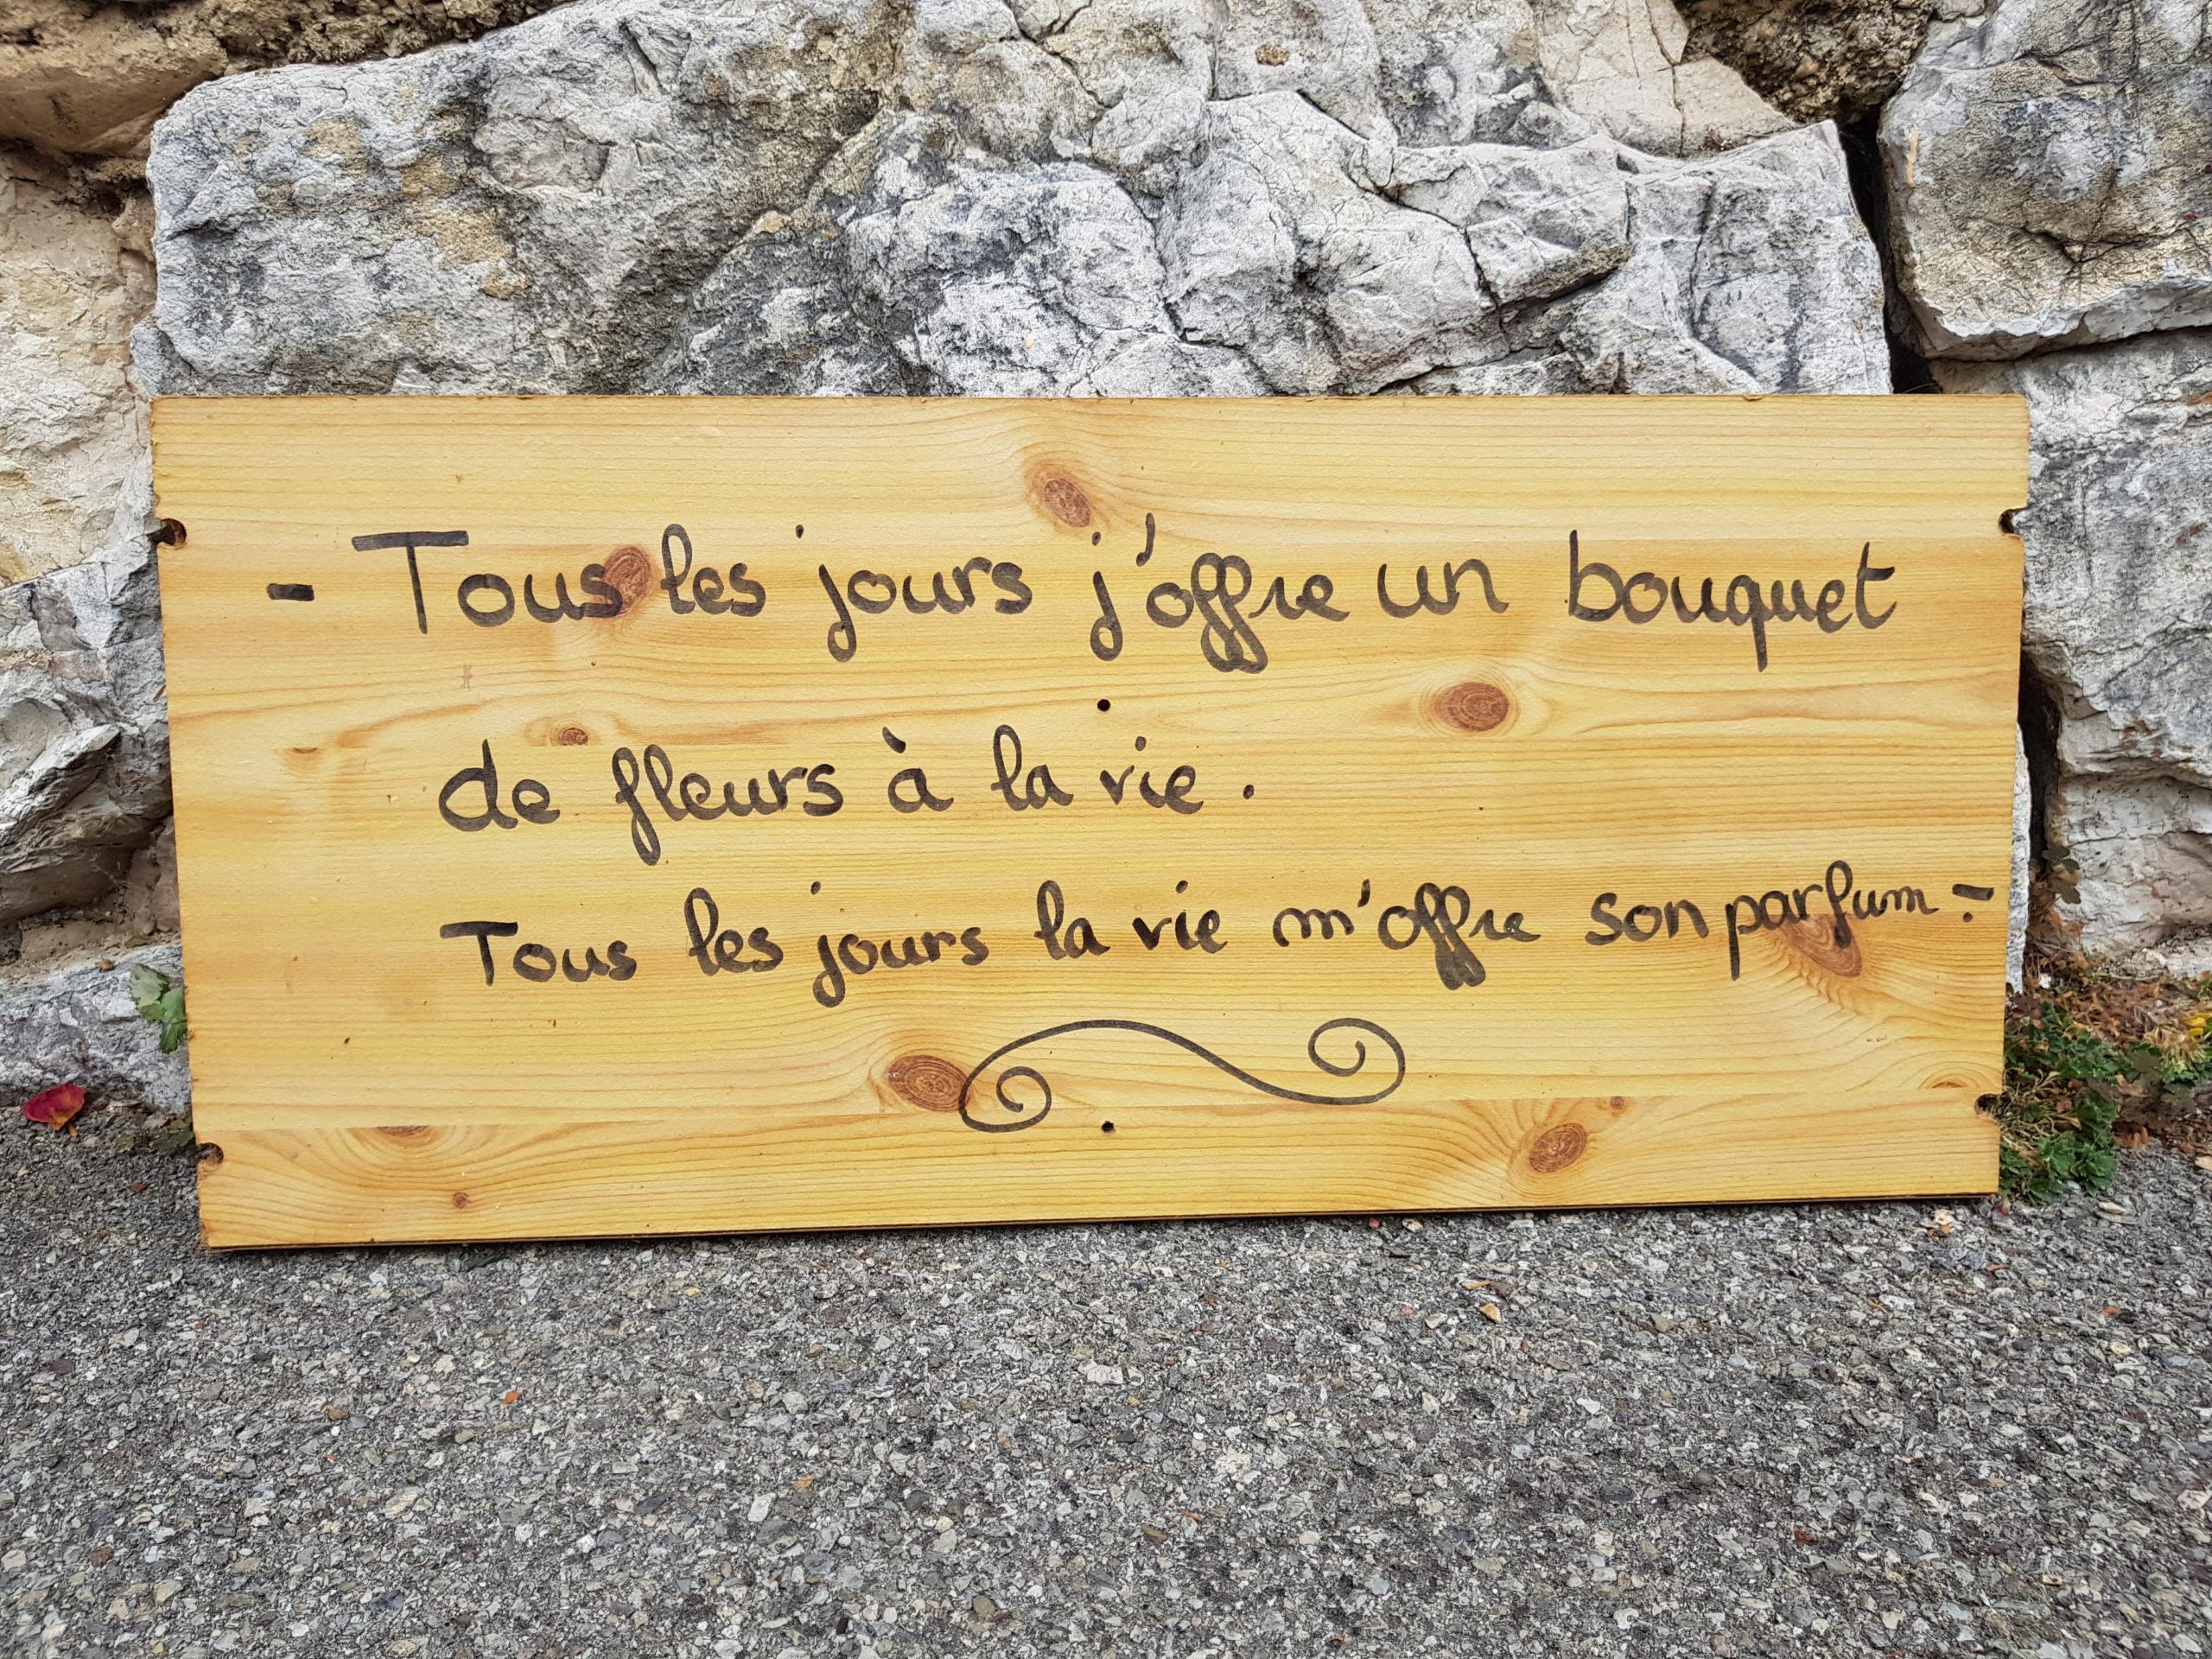 - Tous les jours j'offre un bouquet
de fleurs à la vie.
Tous les jours la vie m'offre son parfum.-